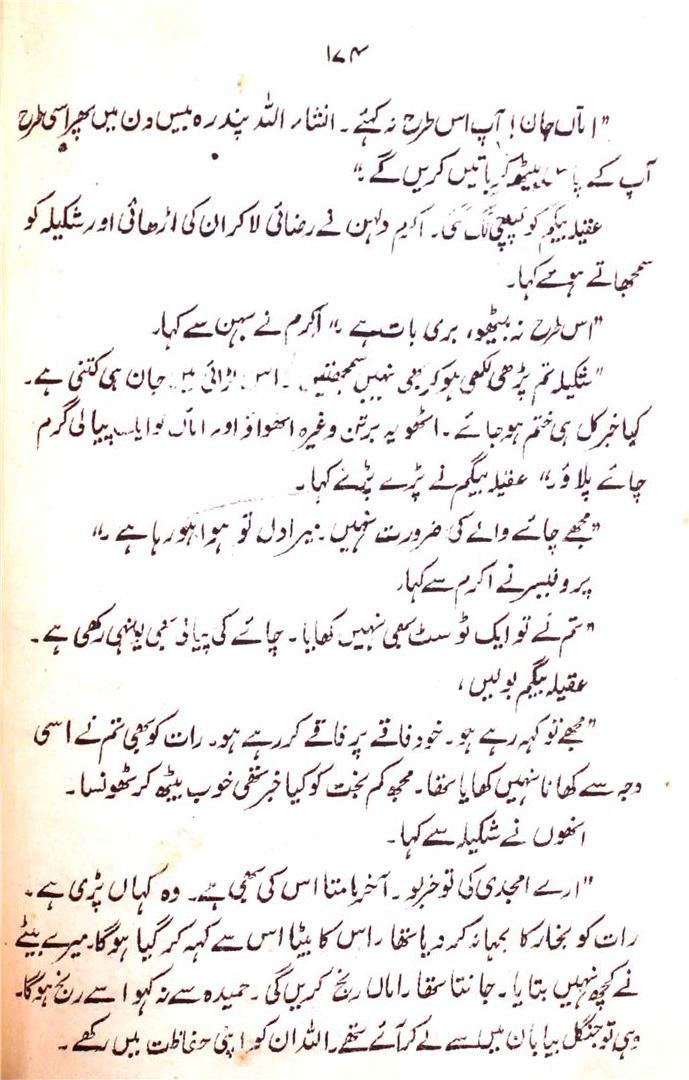 ۱۷۴
"اماں جان! آپ اس طرح نہ کہئے۔ انشاء اللہ پندرہ بیس دن میں پھر اسی طرح
آپ کے پاس بیٹھ کر باتیں کریں گے۔"
عقیلہ بیگم کو کپکپی لگ گئی۔ اکرم دلہن نے رضائی لا کر ان کی اڑھائی اور شکیلہ کو
سمجھاتے ہوئے کہا۔
"اس طرح نہ بیٹھو، بری بات ہے۔" اکرم نے بہن سے کہا۔
"شکیلہ تم پڑھی لکھی ہو کر بھی نہیں سمجھتیں۔ اس لڑائی میں جان ہی کتنی ہے۔
کیا خبر کل ہی ختم ہو جائے۔ اٹھو یہ برتن وغیرہ اٹھواؤ اور اماں کو ایک پیالی گرم
چائے پلاؤ۔" عقیلہ بیگم نے پڑے پڑے کہا۔
"مجھے چائے وائے کی ضرورت نہیں۔ میرا دل تو ہوا ہو رہا ہے۔"
پروفیسر نے اکرم سے کہا۔
"تم نے تو ایک ٹوسٹ بھی نہیں کھایا۔ چائے کی پیالی بھی یونہی رکھی ہے۔
عقیلہ بیگم بولیں،
"مجھے تو کہہ رہے ہو۔ خود فاقے پر فاقے کر رہے ہو۔ رات کو بھی تم نے اسی
وجہ سے کھانا نہیں کھایا تھا۔ مجھ کم بخت کو کیا خبر تھی خوب بیٹھ کر ٹھونسا۔
انھوں نے شکیلہ سے کہا۔
"ارے امجدی کی تو خبر لو۔ آخر مامتا اس کی بھی ہے۔ وہ کہاں پڑی ہے۔
رات کو بخار کا بہانہ کر دیا تھا۔ اس کا بیٹا اس سے کہہ کر گیا ہوگا۔ میرے بیٹے
نے کچھ نہیں بتایا۔ جانتا تھا۔ اماں رنج کریں گی۔ حمیدہ سے نہ کہو اسے رنج ہوگا۔
وہی تو جنگل بیابان میں سے لے کر آئے تھے۔ اللہ ان کو اپنی حفاظت میں رکھے۔